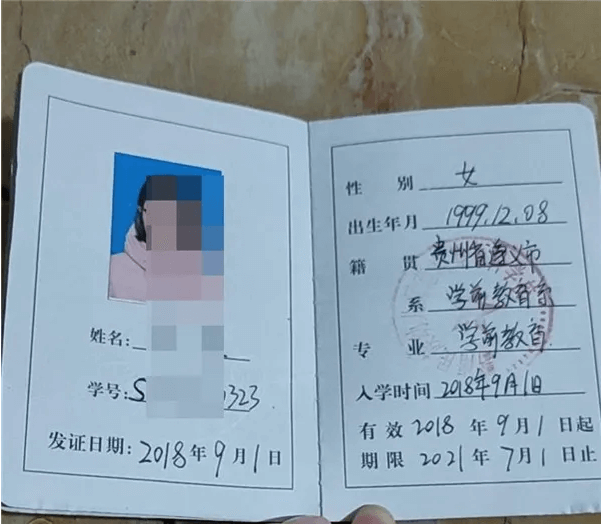 姓名:
学号:S 323
发证日期:2018年9月1日
性别 女
出生年月 1999.12.08
籍贯 贵州省遵义市
系 学前教育系
专业 学前教育
入学时间 2018年9月1日
有效 2018年9月1日起
期限 2021年7月1日止